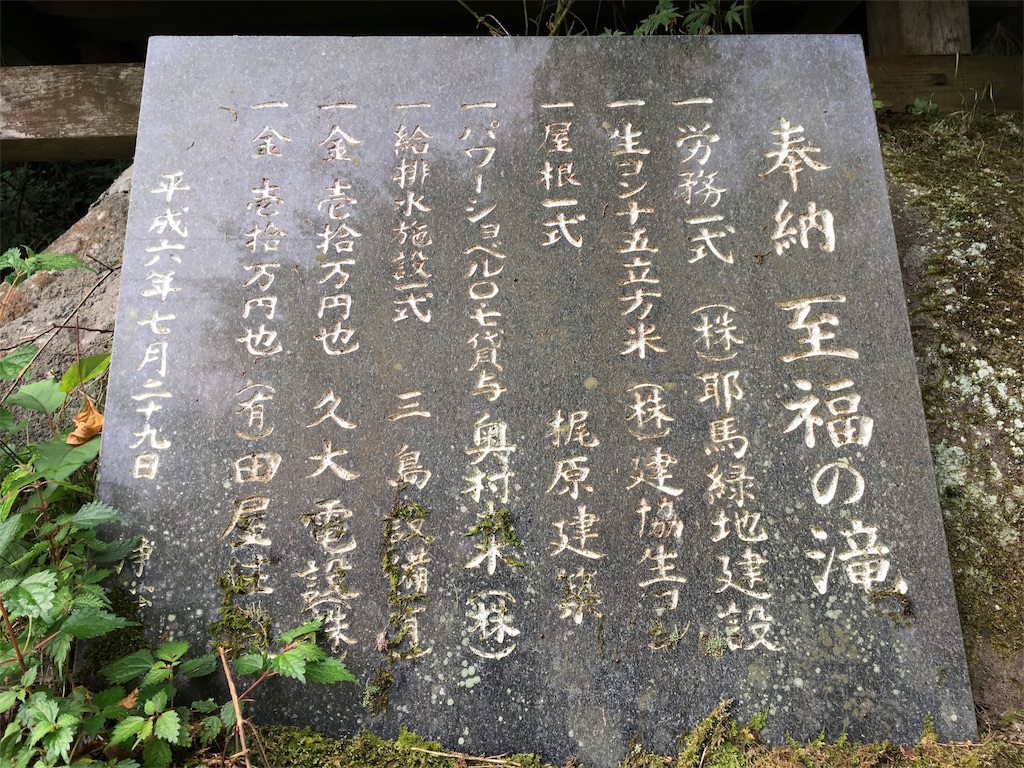 奉納 至福の滝
一労務一式 (株)耶馬緑地建設
一生コン十五立方米 (株)建協生コ
一屋根一式 梶原建築
一パワーショベル〇七貸与 奥村木(株)
一給排水施設一式 三島設備(有)
一金壱拾万円也 久大電設(株)
一金壱拾万円也 (有)田屋
平成六年七月二十九日